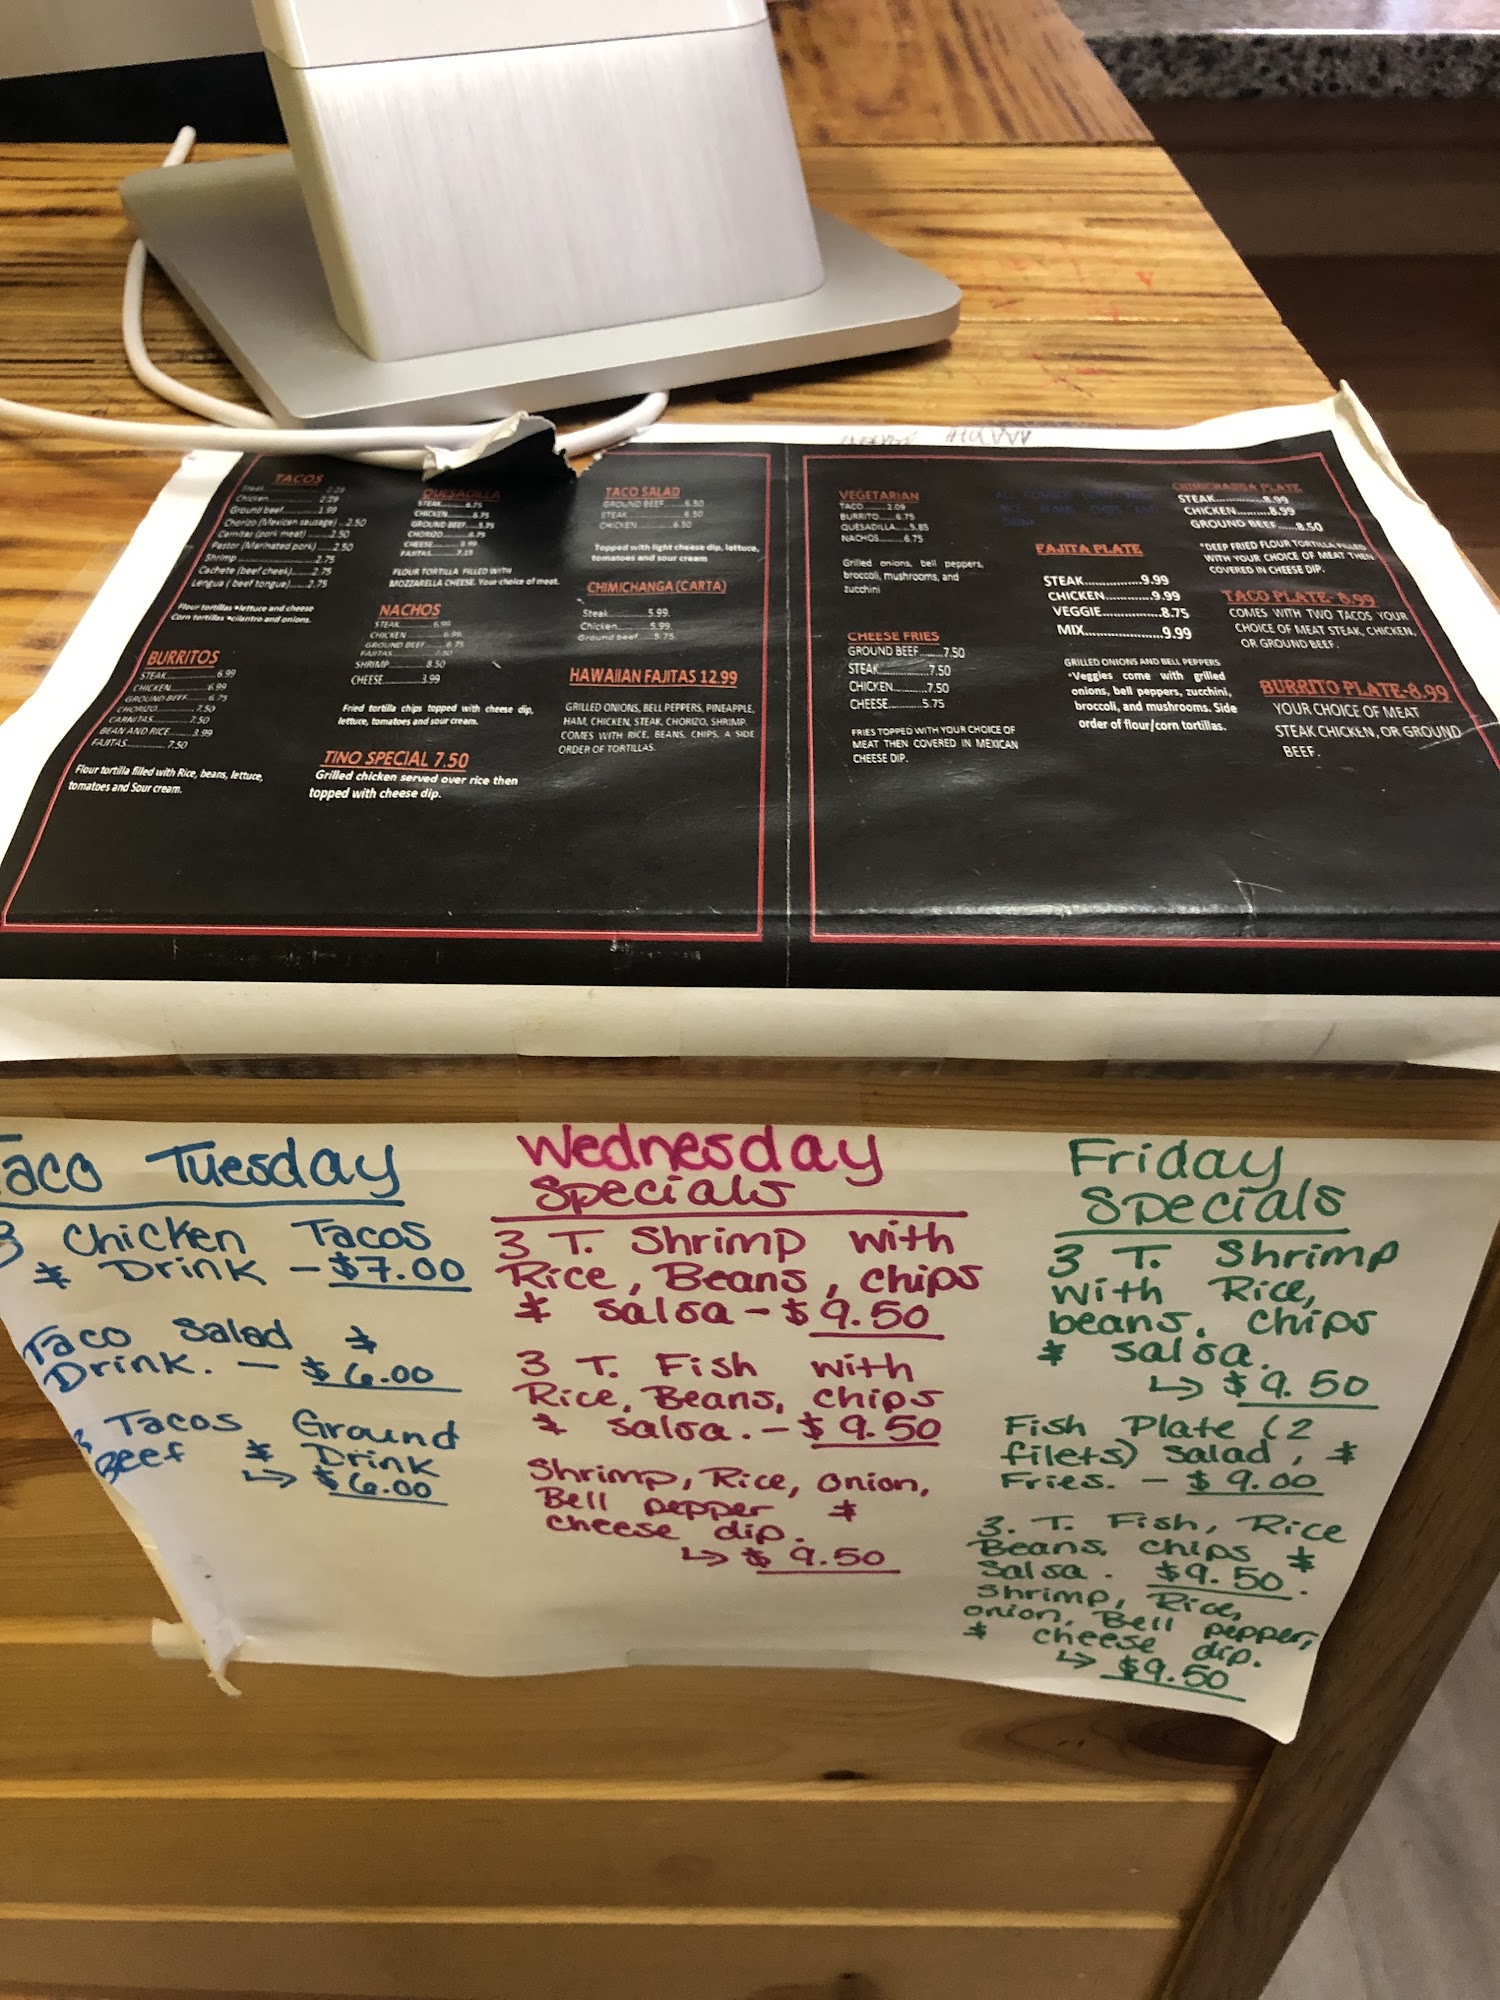 TACOS
Steak............2.29
Chicken............2.29
Ground beef..........1.99
Chorizo (Mexican sausage)...2.50
Carnitas (pork meat).......2.50
Pastor (Marinated pork)....2.50
Shrimp.......2.75
Cachete (beef cheek)......2.75
Lengua ( beef tongue)......2.75
Flour tortillas *lettuce and cheese
Corn tortillas *cilantro and onions.
BURRITOS
STEAK............6.99
CHICKEN............6.99
GROUND BEEF......6.75
CHORIZO............7.50
CARNITAS............7.50
BEAN AND RICE......3.99
FAJITAS............7.50
Flour tortilla filled with Rice, beans, lettuce,
tomatoes and Sour cream.
QUESADILLA
STEAK............6.75
CHICKEN............6.75
GROUND BEEF......5.75
CHORIZO............6.75
CHEESE............3.99
FAJITAS............7.15
FLOUR TORTILLA FILLED WITH
MOZZARELLA CHEESE. Your choice of meat.
NACHOS
STEAK............6.99
CHICKEN............6.99
GROUND BEEF......6.75
FAJITAS............7.50
SHRIMP............8.50
CHEESE............3.99
Fried tortilla chips topped with cheese dip,
lettuce, tomatoes and sour cream.
TINO SPECIAL 7.50
Grilled chicken served over rice then
topped with cheese dip.
TACO SALAD
GROUND BEEF......6.50
STEAK............6.50
CHICKEN............6.50
Topped with light cheese dip, lettuce,
tomatoes and sour cream
CHIMICHANGA (CARTA)
Steak............5.99
Chicken............5.99
Ground beef......5.75
HAWAIIAN FAJITAS 12.99
GRILLED ONIONS, BELL PEPPERS, PINEAPPLE,
HAM, CHICKEN, STEAK, CHORIZO, SHRIMP.
COMES WITH RICE, BEANS, CHIPS, A SIDE
ORDER OF TORTILLAS.
VEGETARIAN
TACO............2.09
BURRITO............6.75
QUESADILLA......5.85
NACHOS............6.75
Grilled onions, bell peppers,
broccoli, mushrooms, and
zucchini
CHEESE FRIES
GROUND BEEF......7.50
STEAK............7.50
CHICKEN............7.50
CHEESE............5.75
FRIES TOPPED WITH YOUR CHOICE OF
MEAT THEN COVERED IN MEXICAN
CHEESE DIP.
RICE BEANS CHIPS AND
DRINK
FAJITA PLATE
STEAK................9.99
CHICKEN............9.99
VEGGIE............8.75
MIX..................9.99
GRILLED ONIONS AND BELL PEPPERS
*Veggies come with grilled
onions, bell peppers, zucchini,
broccoli, and mushrooms. Side
order of flour/corn tortillas.
CHIMICHANGA PLATE
STEAK............8.99
CHICKEN............8.99
GROUND BEEF......8.50
*DEEP FRIED FLOUR TORTILLA FILLED
WITH YOUR CHOICE OF MEAT THEN
COVERED IN CHEESE DIP.
TACO PLATE- 6.99
COMES WITH TWO TACOS YOUR
CHOICE OF MEAT STEAK, CHICKEN,
OR GROUND BEEF.
BURRITO PLATE-8.99
YOUR CHOICE OF MEAT
STEAK CHICKEN, OR GROUND
BEEF.
Taco Tuesday
3 Chicken Tacos
& Drink - $7.00
Taco Salad &
Drink. - $6.00
3 Tacos Ground
Beef & Drink
↳ $6.00
Wednesday
Specials
3 T. Shrimp with
Rice, Beans, chips
& salsa - $9.50
3 T. Fish with
Rice, Beans, chips
& salsa. - $9.50
Shrimp, Rice, onion,
Bell pepper &
cheese dip.
↳ $9.50
Friday
Specials
3 T. Shrimp
with Rice,
beans, chips
& salsa.
↳ $9.50
Fish Plate (2
filets) salad, &
Fries. - $9.00
3. T. Fish, Rice
Beans, chips &
Salsa. $9.50.
Shrimp, Rice,
onion, Bell pepper,
& cheese dip.
↳ $9.50